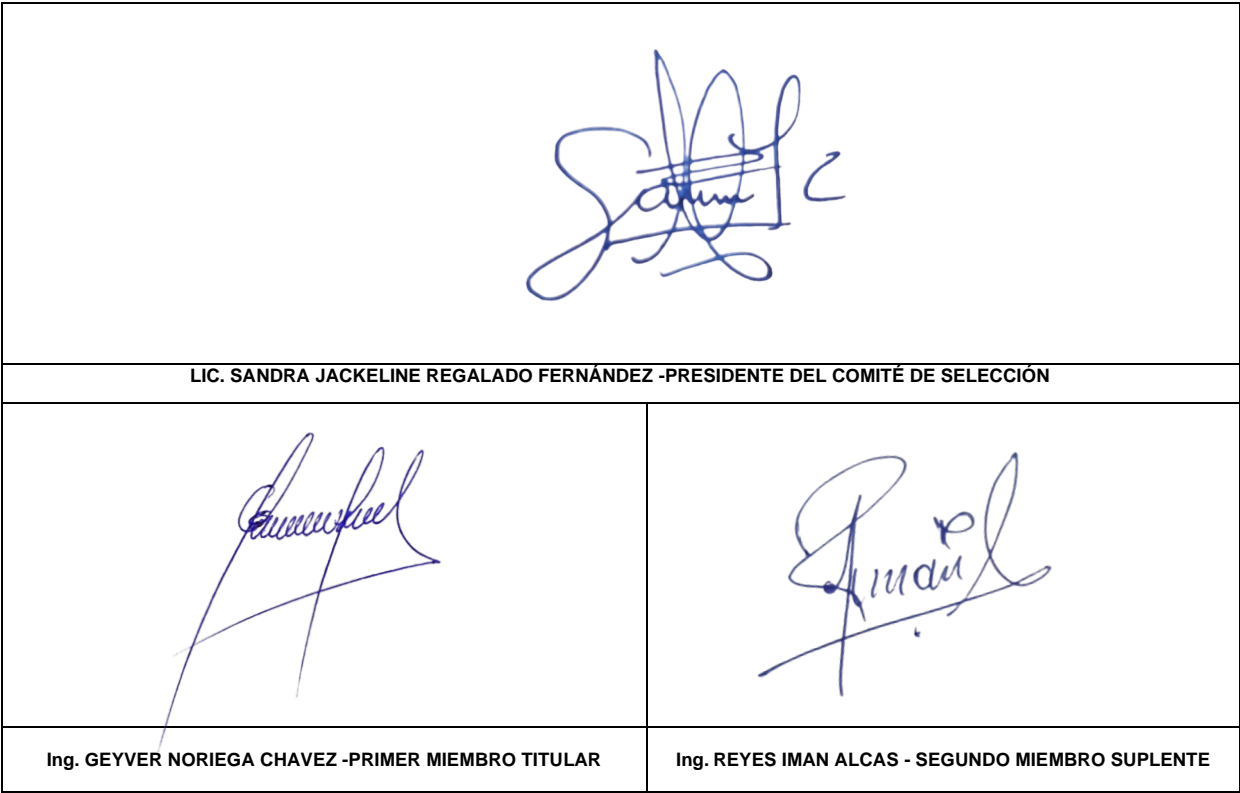 LIC. SANDRA JACKELINE REGALADO FERNÁNDEZ -PRESIDENTE DEL COMITÉ DE SELECCIÓN
Ing. GEYVER NORIEGA CHAVEZ -PRIMER MIEMBRO TITULAR
Ing. REYES IMAN ALCAS - SEGUNDO MIEMBRO SUPLENTE